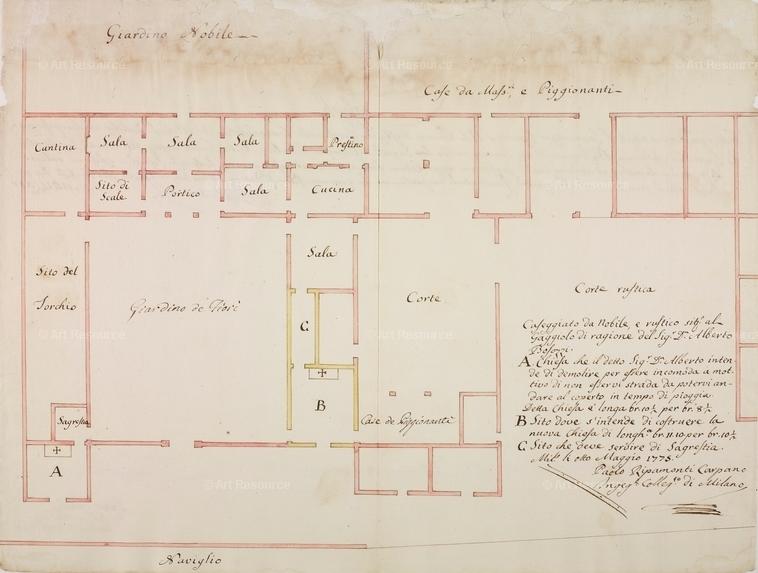 Giardino Nobile
Case da Mass.ri e Piggionanti
Cantina
Sala
Sala
Sala
Prestino
Sito di
Scale
Portico
Sala
Cucina
Sito del
Torchio
Giardino de Fiori
Sala
Corte
Corte rustica
C
B
Case de Piggionanti
Sagrestia
A
Caseggiato da Nobile, e rustico sit.o al
Gaggiolo di ragione del Sig.r D.n Alberto
A Chiesa che il detto Sig.r D.n Alberto inten-
de di demolire per essere incomoda a mot-
tivo di non esservi strada da potervi an-
dare al coperto in tempo di pioggia.
Detta Chiesa è longa br. 10½ per br. 8½
B Sito dove s'intende di costruere la
nuova Chiesa di longh.a br. 11.10 per br. 10½
C Sito che deve servire di Sagrestia.
Mil.o li otto Maggio 1775.
Paolo Ripamonti Carpano
Ingeg.re Colleg.to di Milano
Naviglio
© Art Resource
© Art Resource
© Art Resource
© Art Resource
© Art Resource
© Art Resource
© Art Resource
© Art Resource
© Art Resource